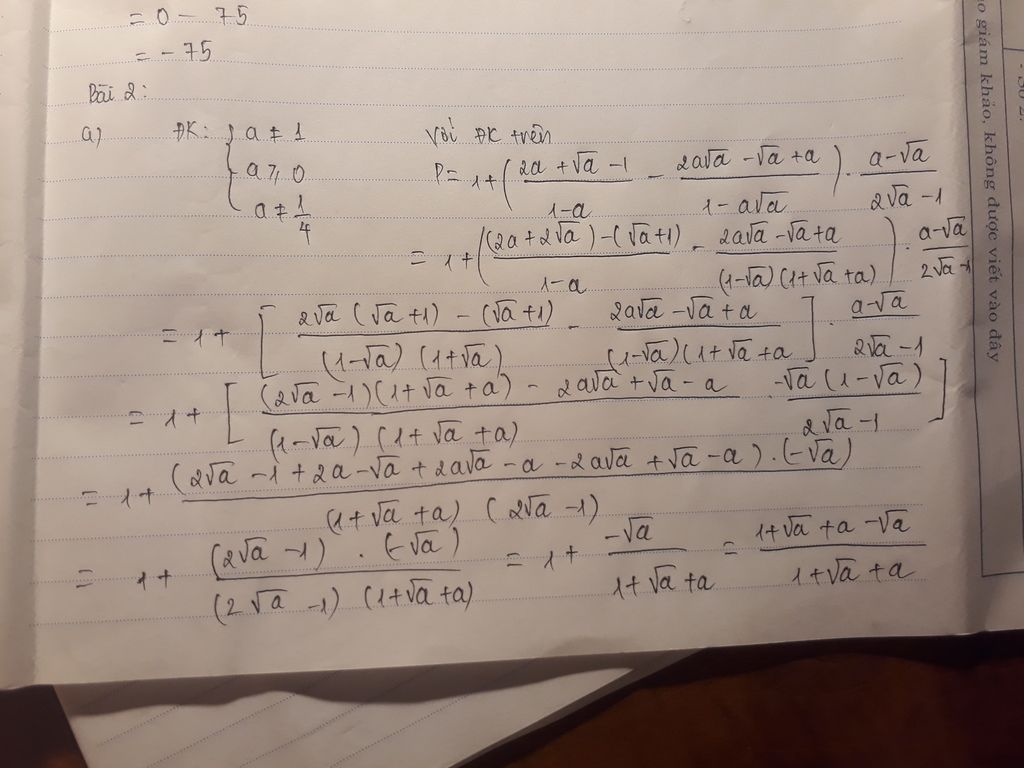 = 0 - 75
= - 75
Bài 2:
a) ĐK: { a ≠ 1 Với ĐK trên
a ⩾ 0 P = 1 + ( (2a + √a - 1)/(1-a) - (2a√a - √a + a)/(1 - a√a) ) . (a - √a)/(2√a - 1)
a ≠ 1/4
= 1 + ( ((2a + 2√a) - (√a + 1))/(1-a) - (2a√a - √a + a)/((1-√a)(1+√a+a)) ) . (a-√a)/(2√a - 1)
= 1 + [ (2√a (√a+1) - (√a+1))/((1-√a)(1+√a)) - (2a√a - √a + a)/((1-√a)(1+√a+a)) ] . (a-√a)/(2√a - 1)
= 1 + [ ((2√a - 1)(1+√a + a) - 2a√a + √a - a)/((1-√a)(1+√a + a)) . (-√a (1-√a))/(2√a - 1) ]
= 1 + ((2√a - 1 + 2a - √a + 2a√a - a - 2a√a + √a - a).(-√a))/((1+√a + a)(2√a - 1))
= 1 + ((2√a - 1) . (-√a))/((2√a - 1)(1+√a+a)) = 1 + (-√a)/(1+√a+a) = (1+√a + a - √a)/(1+√a + a)
o giám khảo, không được viết vào đây